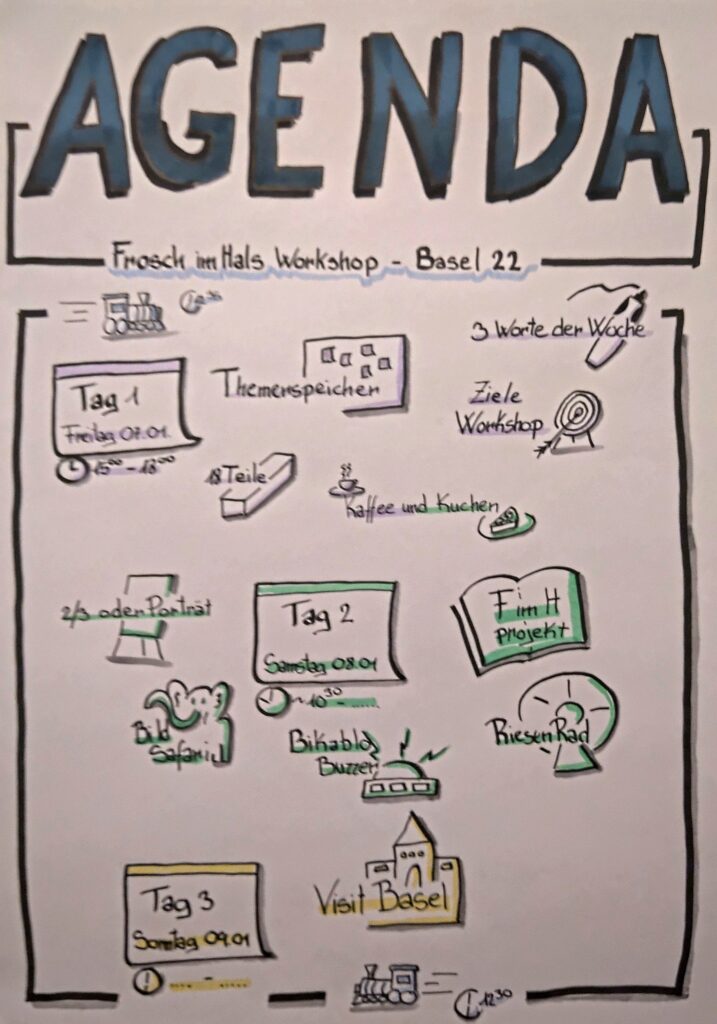 AGENDA
Frosch im Hals Workshop - Basel 22
3 Worte der Woche
Themenspeicher
Tag 1
Freitag 07.01.
15⁰⁰ - 18⁰⁰
Ziele
Workshop
18 Teile
Kaffee und Kuchen
2/3 oder Porträt
Tag 2
Samstag 08.01
~10³⁰ - ......
F im H
projekt
Bild
Safari
Bikablo
Buzzer
RiesenRad
Tag 3
Sonntag 09.01
.... - ....
Visit Basel
12³⁰